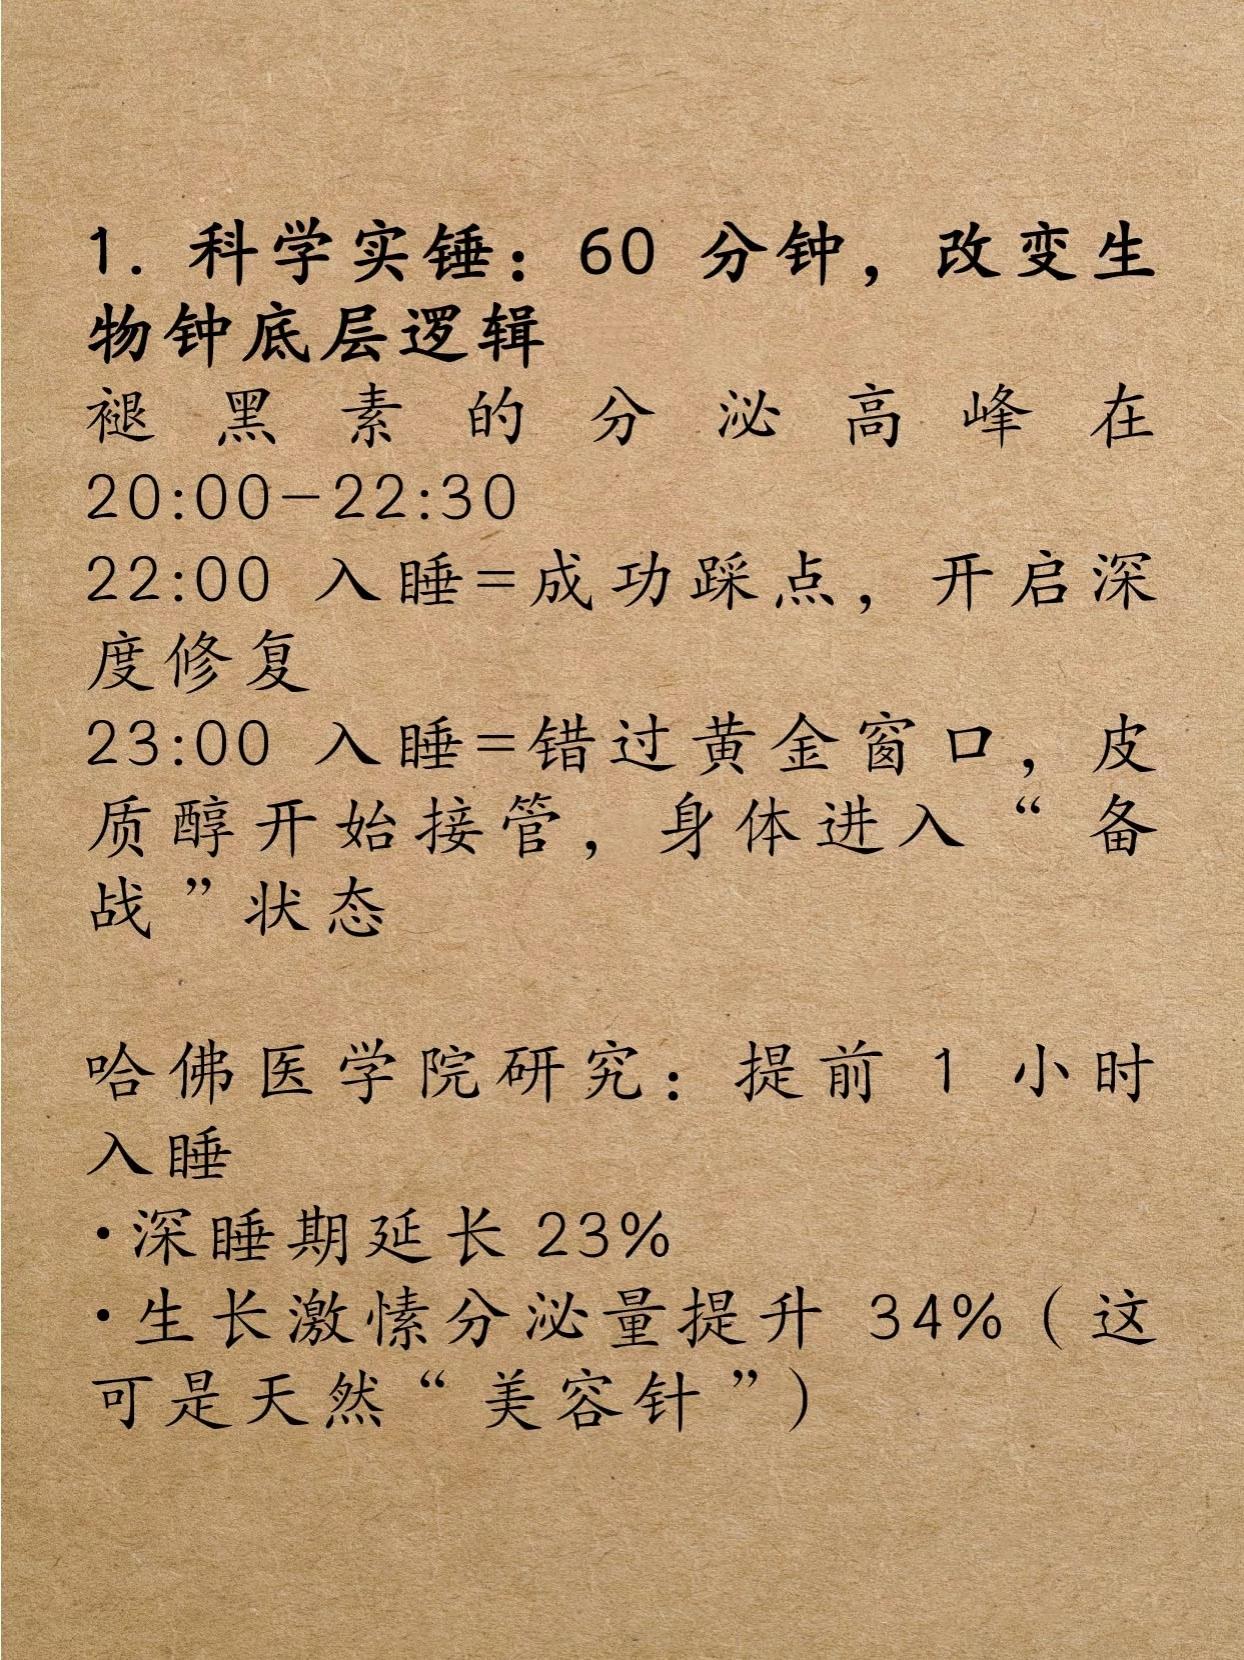 1. 科学实锤：60 分钟，改变生
物钟底层逻辑
褪黑素的分泌高峰在
20:00-22:30
22:00 入睡=成功踩点，开启深
度修复
23:00 入睡=错过黄金窗口，皮
质醇开始接管，身体进入“备
战”状态
哈佛医学院研究：提前 1 小时
入睡
·深睡期延长 23%
·生长激愫分泌量提升 34%（这
可是天然“美容针”）